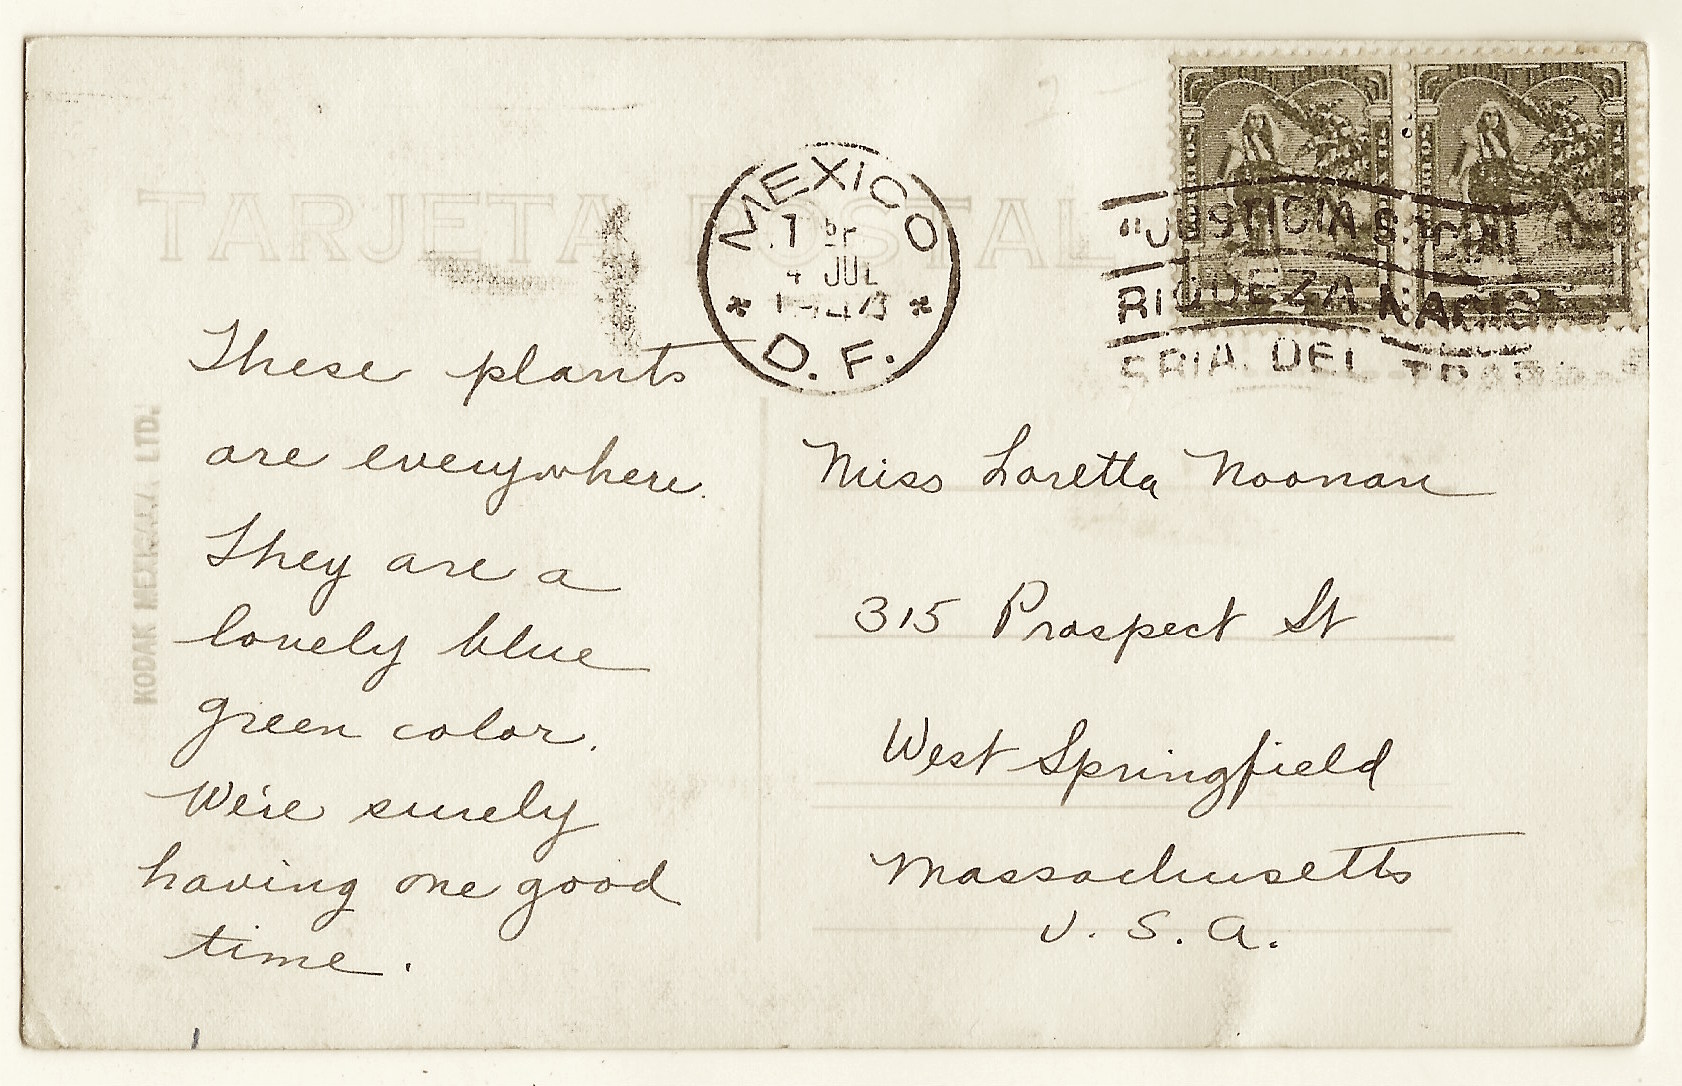 TARJETA POSTAL
MEXICO
7
4 JUL
D. F.
"JUSTICIA
RIQUEZA
SRIA. DEL
KODAK MEXICANA LTD.
These plants
are everywhere.
They are a
lovely blue
green color.
We're surely
having one good
time.
Miss Loretta Noonan
315 Prospect St
West Springfield
Massachusetts
U. S. A.